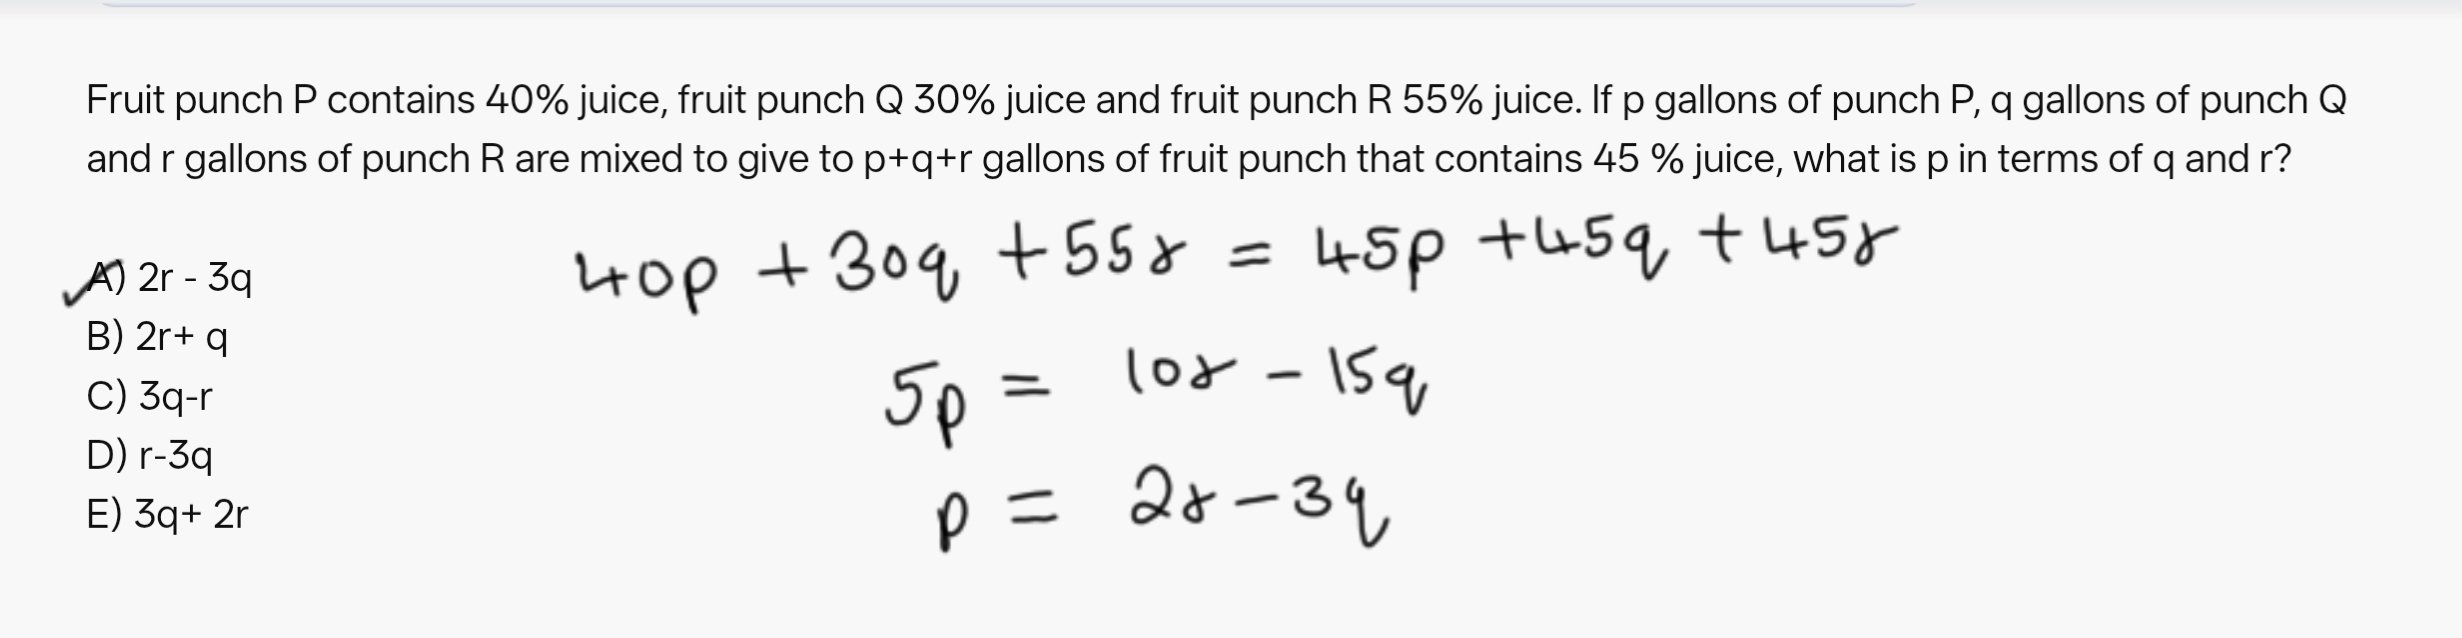 Fruit punch P contains 40% juice, fruit punch Q 30% juice and fruit punch R 55% juice. If p gallons of punch P, q gallons of punch Q
and r gallons of punch R are mixed to give to p+q+r gallons of fruit punch that contains 45 % juice, what is p in terms of q and r?
40p + 30q + 55r = 45p + 45q + 45r
A) 2r - 3q
B) 2r+ q
5p = 10r - 15q
C) 3q-r
D) r-3q
p = 2r - 3q
E) 3q+ 2r